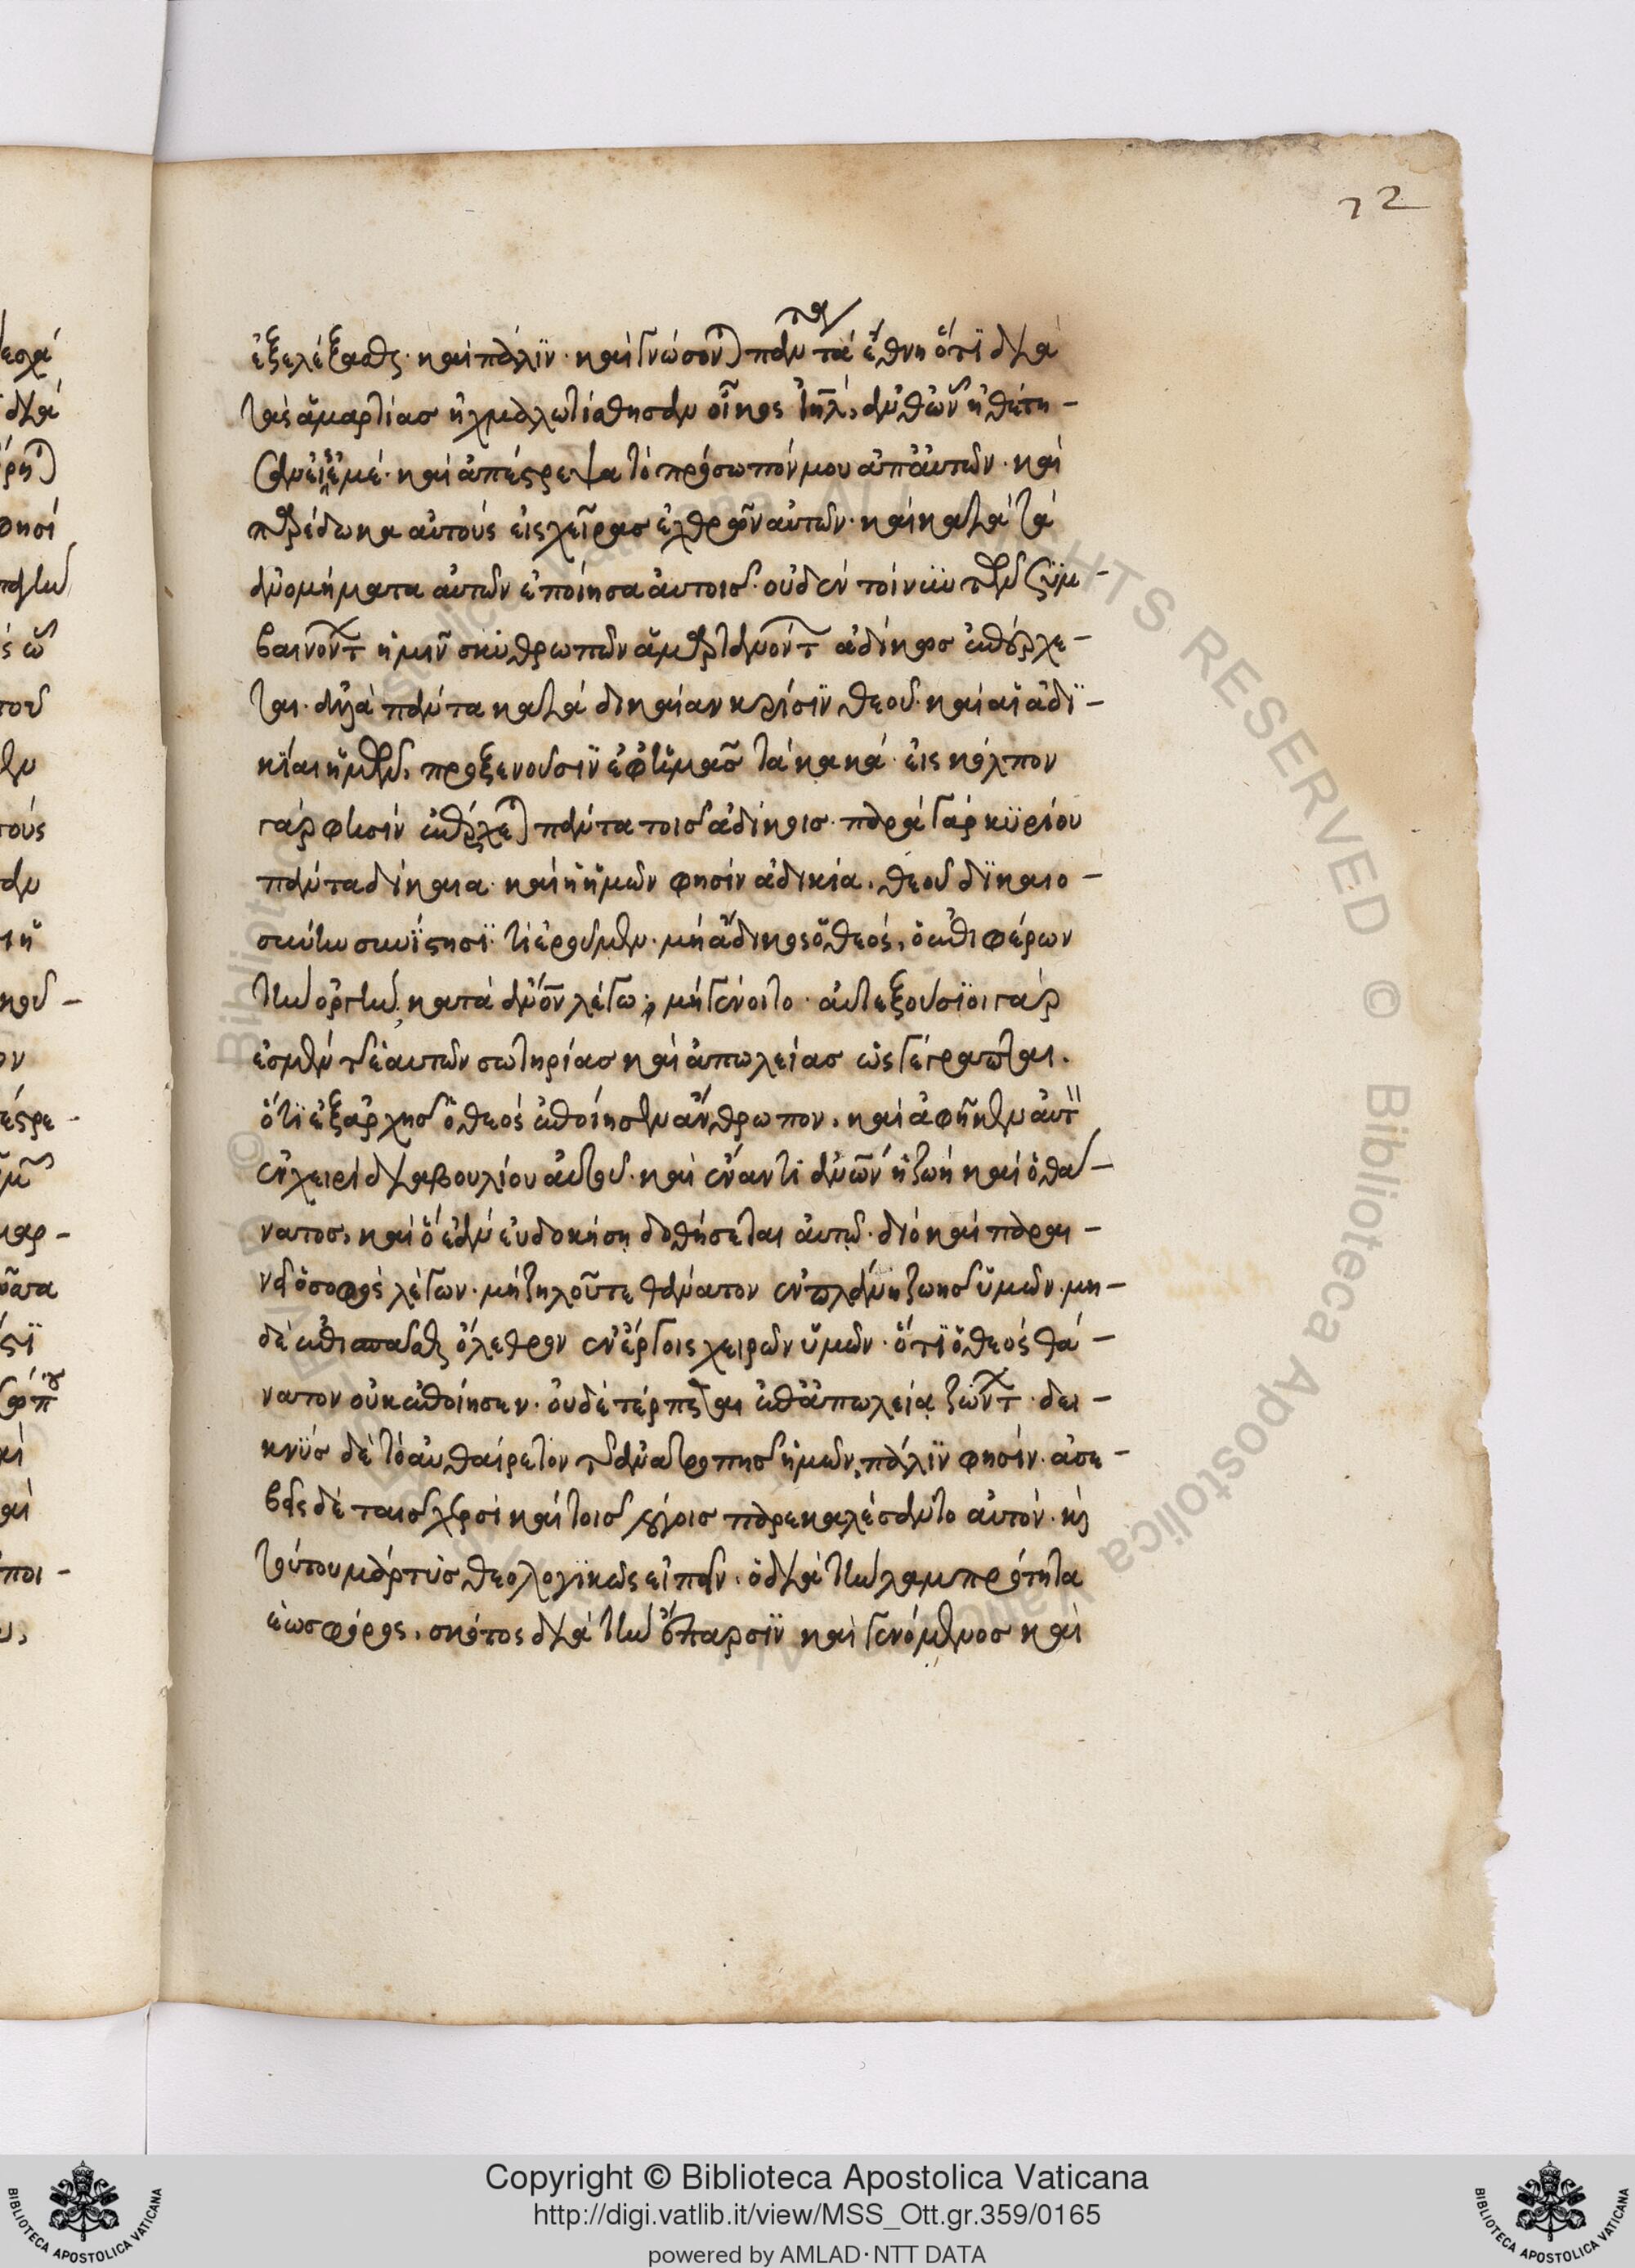 72
ἐξελέξασθε· καὶ πάλϊν· καὶ γνώσονται πάντα τὰ ἔθνη ὅτϊ διὰ
τὰς ἁμαρτίας ἠχμαλωτίσθησαν οἶκος ἰηλ, ἀνθ ὧν ἠθέτη-
σαν εἰς ἐμέ· καὶ ἀπέστρεψα τὸ πρόσωπόν μου ἀπ αὐτῶν· καὶ
παρέδωκα αὐτοὺς εἰς χεῖρας ἐχθρῶν αὐτῶν· καὶ κατὰ τὰ
ἀνομήματα αὐτῶν ἐποίησα αὐτοῖς· οὐδὲν τοίνυν τῶν συμ-
βαινόντων ἡμῖν σκυθρωπῶν ἁμαρτάνοντων ἀδίκως ἐπέρχε-
ται· ἀλλὰ πάντα κατὰ δικαίαν κρίσϊν θεοῦ· καὶ αἱ ἀδϊ-
κίαι ἡμῶν, προξενοῦσϊν ἐφ ἡμᾶς τὰ κακά· εἰς κόλπον
γάρ φησὶν ἐπέρχεται πάντα τοῖς ἀδίκοις· παρὰ γὰρ κϋρίου
πάντα δίκαια· καὶ ἡ ἡμῶν φησὶν ἀδικία, θεοῦ δϊκαιο-
σύνην συνΐστησϊ· τί ἐροῦμεν· μὴ ἄδικος ὁ θεός, ὁ ἐπιφέρων
τὴν ὀργὴν, κατὰ ἄνον λέγω; μὴ γένοιτο· αὐτεξούσϊοι γάρ
ἐσμεν τῆς ἑαυτῶν σωτηρίας καὶ ἀπωλείας ὡς γέγραπται.
ὅτϊ ἐξ ἀρχῆς ὁ θεὸς ἐποίησεν ἄνθρωπον, καὶ ἀφῆκεν αὐτὸν
ἐν χειρὶ διαβουλίου αὐτοῦ· καὶ ἔναντϊ ἀνῶν ἡ ζωὴ καὶ ὁ θά-
νατος, καὶ ὃ ἐὰν εὐδοκήσῃ δοθήσεται αὐτῷ· διὸ καὶ παραι-
νεῖ ὁ σοφὸς λέγων· μὴ ζηλοῦτε θάνατον ἐν πλάνῃ ζωῆς ὑμῶν· μη-
δὲ ἐπισπᾶσθε ὄλεθρον ἐν ἔργοις χειρῶν ὑμῶν· ὅτϊ ὁ θεὸς θά-
νατον οὐκ ἐποίησεν· οὐδὲ τέρπεται ἐπ ἀπωλείᾳ ζώντων· δει-
κνϋς δὲ τὸ αὐθαίρετον τῆς ἀνατροπῆς ἡμῶν, πάλϊν φησίν· ἀσε-
βεῖς δὲ ταῖς χερσὶ καὶ τοῖς λόγοις παρεκαλέσαντο αὐτόν· καὶ
τούτου μάρτυς θεολογϊκῶς εἰπεῖν, ὁ διὰ τὴν λαμπρότητα
ἑωσφόρος, σκότος διὰ τὴν ἔπαρσϊν καὶ γενόμενος καὶ
Copyright © Biblioteca Apostolica Vaticana
http://digi.vatlib.it/view/MSS_Ott.gr.359/0165
powered by AMLAD·NTT DATA